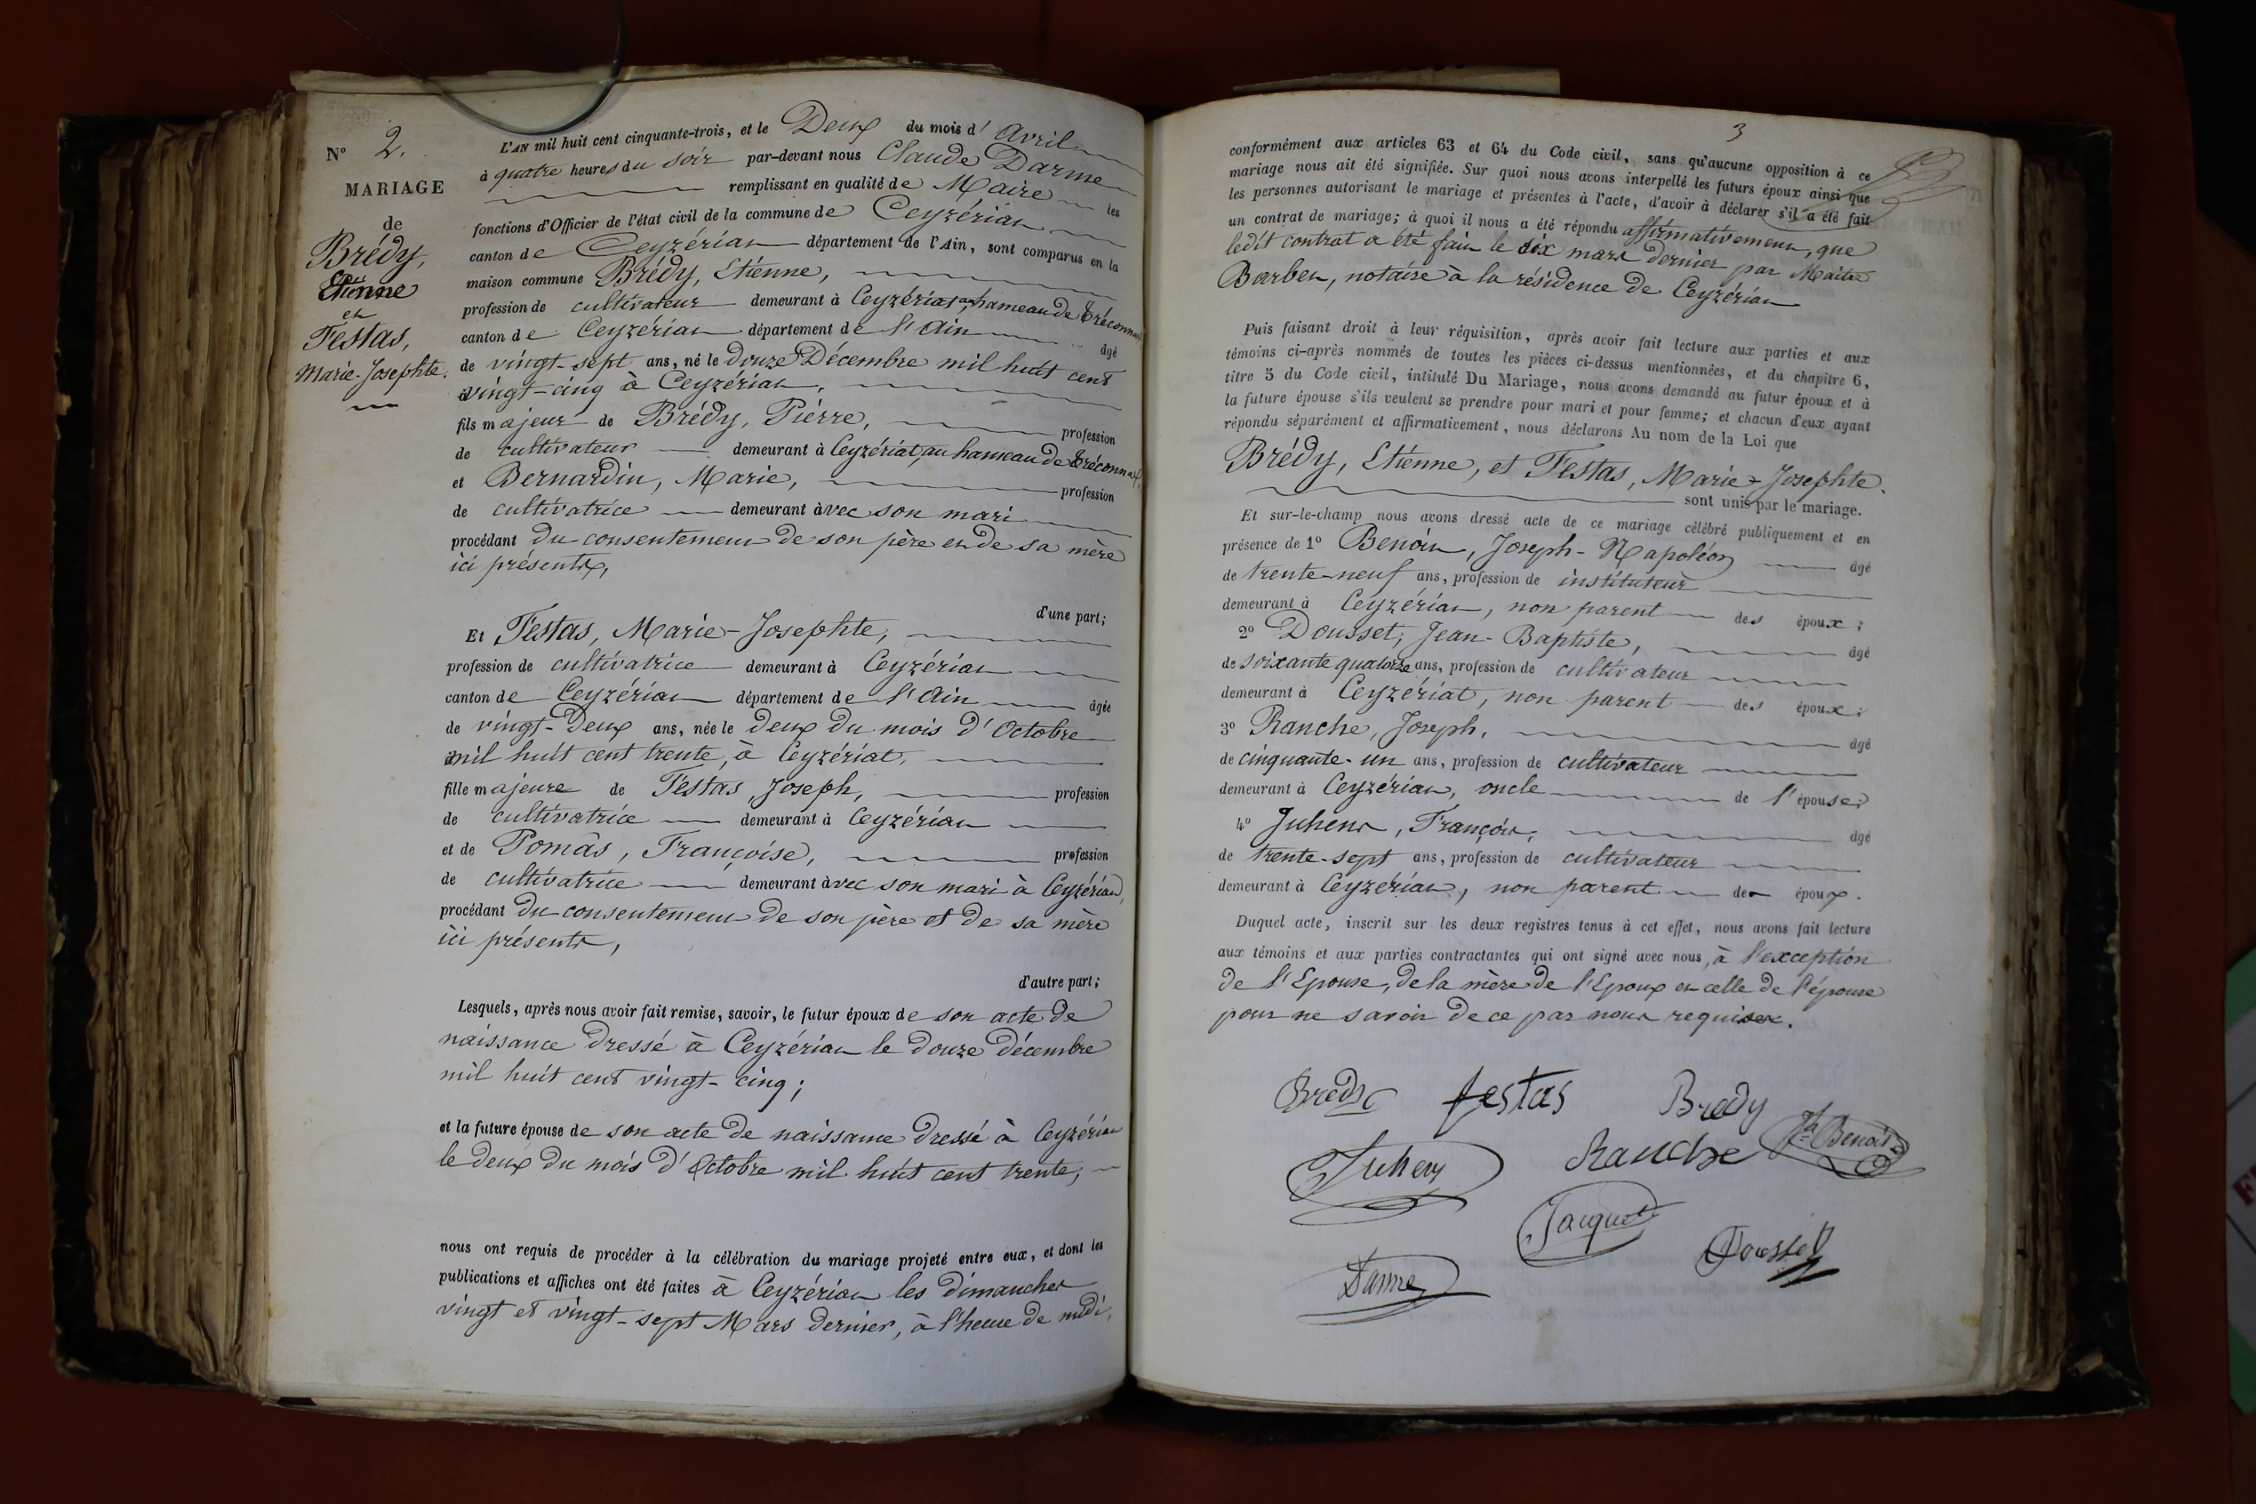 N° 2.
MARIAGE
de
Brédy,
Etienne
et
Festas,
Marie-Josephte.
L'AN mil huit cent cinquante-trois, et le Deux du mois d'Avril
à quatre heures du soir par-devant nous Claude Darme
remplissant en qualité de Maire les
fonctions d'Officier de l'état civil de la commune de Ceyzériat
canton de Ceyzériat département de l'Ain, sont comparus en la
maison commune Brédy, Etienne,
profession de cultivateur demeurant à Ceyzériat, au hameau de Tréconnas
canton de Ceyzériat département de l'Ain âgé
de vingt-sept ans, né le Douze Décembre mil huit cent
vingt-cinq à Ceyzériat,
fils majeur de Brédy, Pierre, profession
de cultivateur demeurant à Ceyzériat, au hameau de Tréconnas,
et Bernardin, Marie, profession
de cultivatrice demeurant avec son mari
procédant du consentement de son père et de sa mère
ici présents,
d'une part;
Et Festas, Marie-Josephte,
profession de cultivatrice demeurant à Ceyzériat
canton de Ceyzériat département de l'Ain âgée
de vingt-Deux ans, née le deux du mois d'Octobre
mil huit cent trente, à Ceyzériat,
fille majeure de Festas, Joseph, profession
de cultivatrice demeurant à Ceyzériat
et de Pomâs, Françoise, profession
de cultivatrice demeurant avec son mari à Ceyzériat,
procédant Du consentement de son père et de sa mère
ici présents,
d'autre part;
Lesquels, après nous avoir fait remise, savoir, le futur époux de son acte de
naissance dressé à Ceyzériat le douze décembre
mil huit cent vingt-cinq;
et la future épouse de son acte de naissance dressé à Ceyzériat
le deux du mois d'Octobre mil huit cent trente;
nous ont requis de procéder à la célébration du mariage projeté entre eux, et dont les
publications et affiches ont été faites à Ceyzériat les dimanches
vingt et vingt-sept Mars dernier, à l'heure de midi,
3
conformément aux articles 63 et 64 du Code civil, sans qu'aucune opposition à ce
mariage nous ait été signifiée. Sur quoi nous avons interpellé les futurs époux ainsi que
les personnes autorisant le mariage et présentes à l'acte, d'avoir à déclarer s'il a été fait
un contrat de mariage; à quoi il nous a été répondu affirmativement, que
ledit contrat a été fait le dix mars dernier par Maitre
Barbet, notaire à la résidence de Ceyzériat
Puis faisant droit à leur réquisition, après avoir fait lecture aux parties et aux
témoins ci-après nommés de toutes les pièces ci-dessus mentionnées, et du chapitre 6,
titre 5 du Code civil, intitulé Du Mariage, nous avons demandé au futur époux et à
la future épouse s'ils veulent se prendre pour mari et pour femme; et chacun d'eux ayant
répondu séparément et affirmativement, nous déclarons Au nom de la Loi que
Brédy, Etienne, et Festas, Marie-Josephte.
sont unis par le mariage.
Et sur-le-champ nous avons dressé acte de ce mariage célébré publiquement et en
présence de 1° Benoit, Joseph-Napoléon âgé
de trente-neuf ans, profession de instituteur
demeurant à Ceyzériat, non parent des époux;
2° Dousset, Jean-Baptiste, âgé
de soixante quatorze ans, profession de cultivateur
demeurant à Ceyzériat, non parent des époux;
3° Ranche, Joseph, âgé
de cinquante-un ans, profession de cultivateur
demeurant à Ceyzériat, oncle de l'épouse;
4° Juhens, François, âgé
de trente-sept ans, profession de cultivateur
demeurant à Ceyzériat, non parent des époux.
Duquel acte, inscrit sur les deux registres tenus à cet effet, nous avons fait lecture
aux témoins et aux parties contractantes qui ont signé avec nous, à l'exception
de l'Epouse, de la mère de l'Epoux et celle de l'épouse
pour ne savoir de ce par nous requises.
Brédy festas Bredy
Juhen Ranche Benoit
Jacquet
Darme Dousset